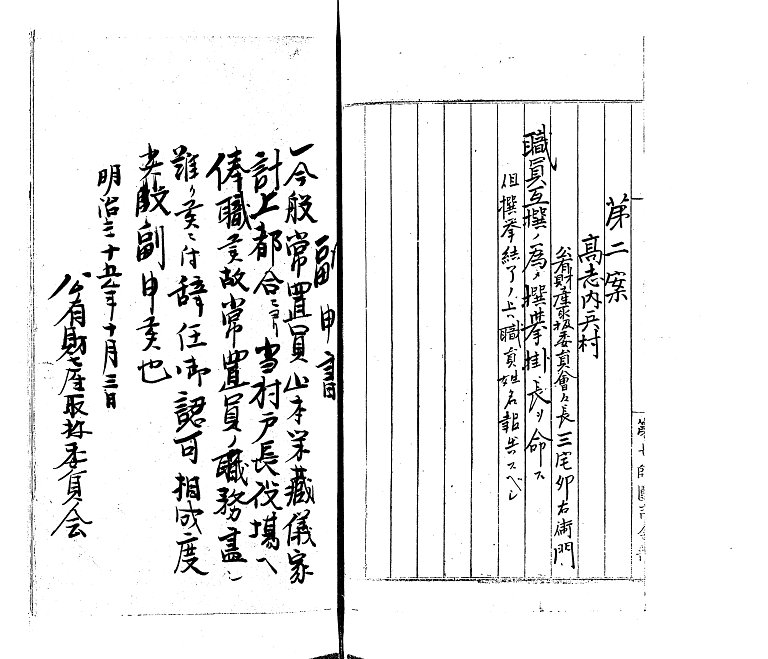 第二案
高志内兵村
公有財産取扱委員會々長 三宅卯右衛門
職員互撰ノ為メ撰挙掛長ヲ命ス
但撰挙結了ノ上ハ職員姓名報告スベシ
副申書
一今般常置員山本栄蔵儀家
計上都合ニヨリ当村戸長役場ヘ
俸職候故常置員ノ職務尽シ
難ク候ニ付辞任御認可相成度
此段副申候也
明治三十五年十月三日
公有財産取扱委員会